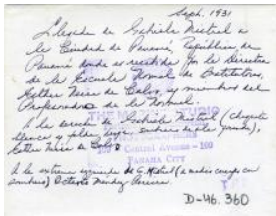 Sept. 1931
Llegada de Gabriela Mistral a
la Ciudad de Panamá, República de
Panamá donde es recibida por la Directora
de la Escuela Normal de Institutoras,
Esther Neira de Calvo, y miembros del
Profesorado de la Normal.
A la derecha de Gabriela Mistral (chaqueta
blanca y sombrero de ala grande),
Esther Neira de Calvo
A la extrema izquierda de G. Mistral (a medio cuerpo con
sombrero) Octavio Méndez Pereira
THE STUDIO
Central Avenue - 100
PANAMA CITY
D-46.360